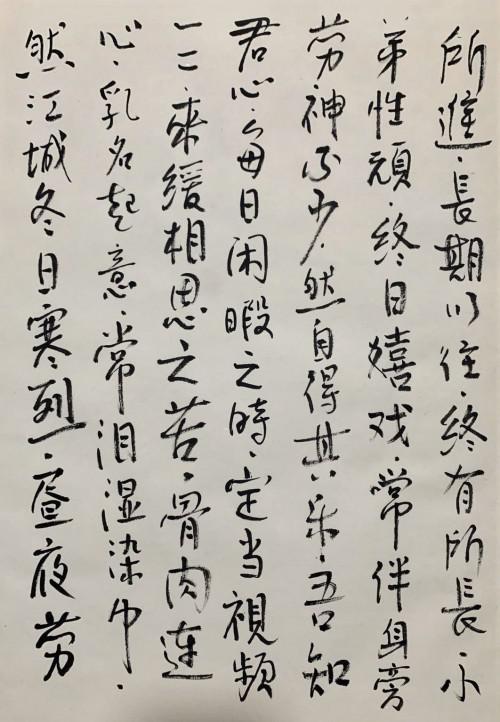 所進·長期以往·終有所長·小
弟性頑·終日嬉戏·常伴身旁
劳·神不少·然自得其乐·吾知
君心·每日闲暇之時·定当視频
一二·来缓相思之苦·骨肉连
心·乳名起意·常泪湿染巾·
然江城冬日寒烈·昼夜劳